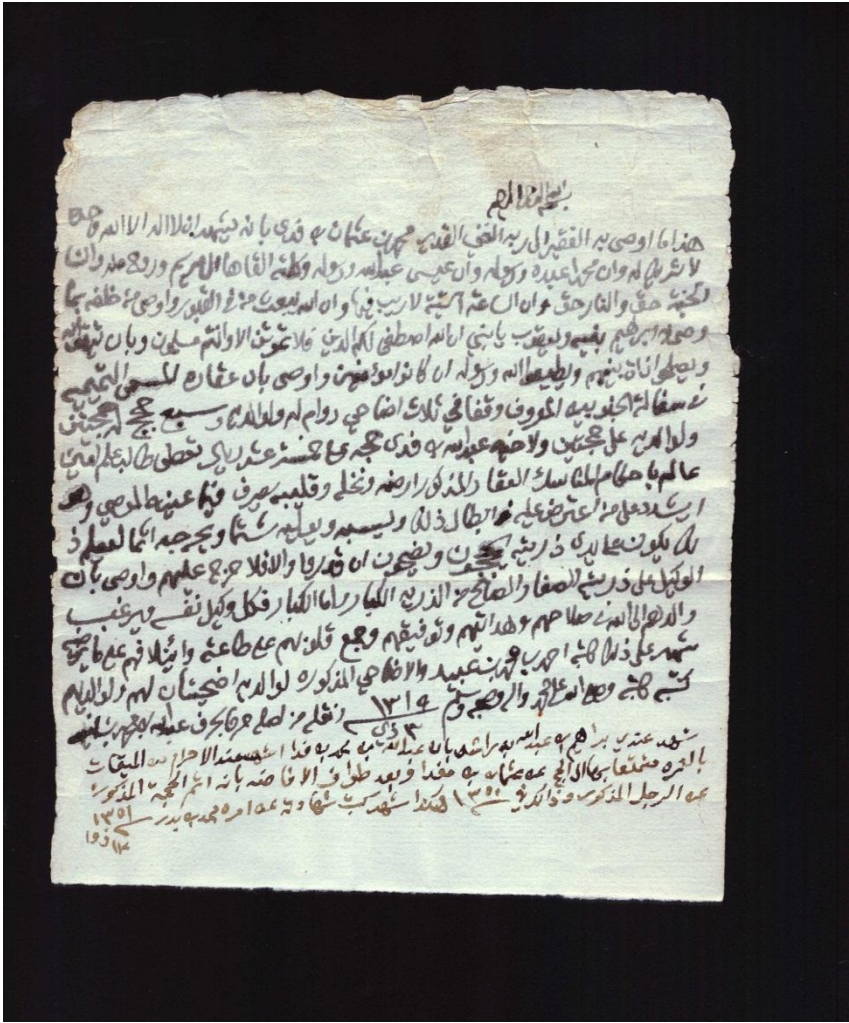 بسم الله الرحمن الرحيم
هذا ما اوصى به الفقير الى ربه الغني القدير محمد بن عثمان بن فدى بانه يشهد ان لا اله الا الله وحده
لا شريك له وان محمدا عبده ورسوله وان عيسى عبد الله ورسوله وكلمته القاها الى مريم وروح منه وان
الجنة حق والنار حق وان الساعة آتية لا ريب فيها وان الله يبعث من في القبور واوصى من خلفه بما
وصى ابراهيم بنيه ويعقوب يابني ان الله اصطفى لكم الدين فلا تموتن الا وانتم مسلمون وبان يتقوا الله
ويصلحوا ذات بينهم ويطيعوا الله ورسوله ان كانوا مؤمنين واوصى بان عقاره المسمى
في سفالة الجنوبيه المعروف وقفا في ثلاث اضاحي دوام له ولوالديه وسبع حجج له حجتين
ولوالديه على حجتين ولاخيه عبد الله بن فدى حجه على خمسة عشر ريال تعطى طالب علم
عالم باحكام المناسك العقار المذكور ارضه ونخله وقليبه يصرف فيما عينه الموصي
على من اعترض عليه ابطال ذلك
يكون على يدي ذريته يحجون ويضحون ان قدروا والا فلا حرج عليهم واوصى بان
الوكيل على ذريته الصغار الصالح من الذريه الكبار واما الكبار فكل وكيل نفسه ويرغب
والدهم الى الله في صلاحهم وهدايتهم وتوفيقهم وجمع قلوبهم على طاعته وائتلافهم على
شهد على ذلك كاتبه احمد بن محمد بن عبيد والاضاحي المذكوره لوالديه اضحيتان لهم ولوالديهم
كتبه وصلى الله على محمد واله وصحبه وسلم ١٣١٩ نقله من اصله حرفا بحرف عبد الله
شهد عندي براهيم بن عبد الله بن راشد بان عبد الله بن محمد بن فدا اشهده عند الاحرام من الميقات
بالعمره متمتعا بها الى الحج عن عثمان بن فدا وبعد طواف الافاضه بانه اتم الحجة المذكورة
عن الرجل المذكور وذالك في ١٣٥٠ هكذا شهد كتب شهادته عن امره محمد بن بدر ١٣٥١